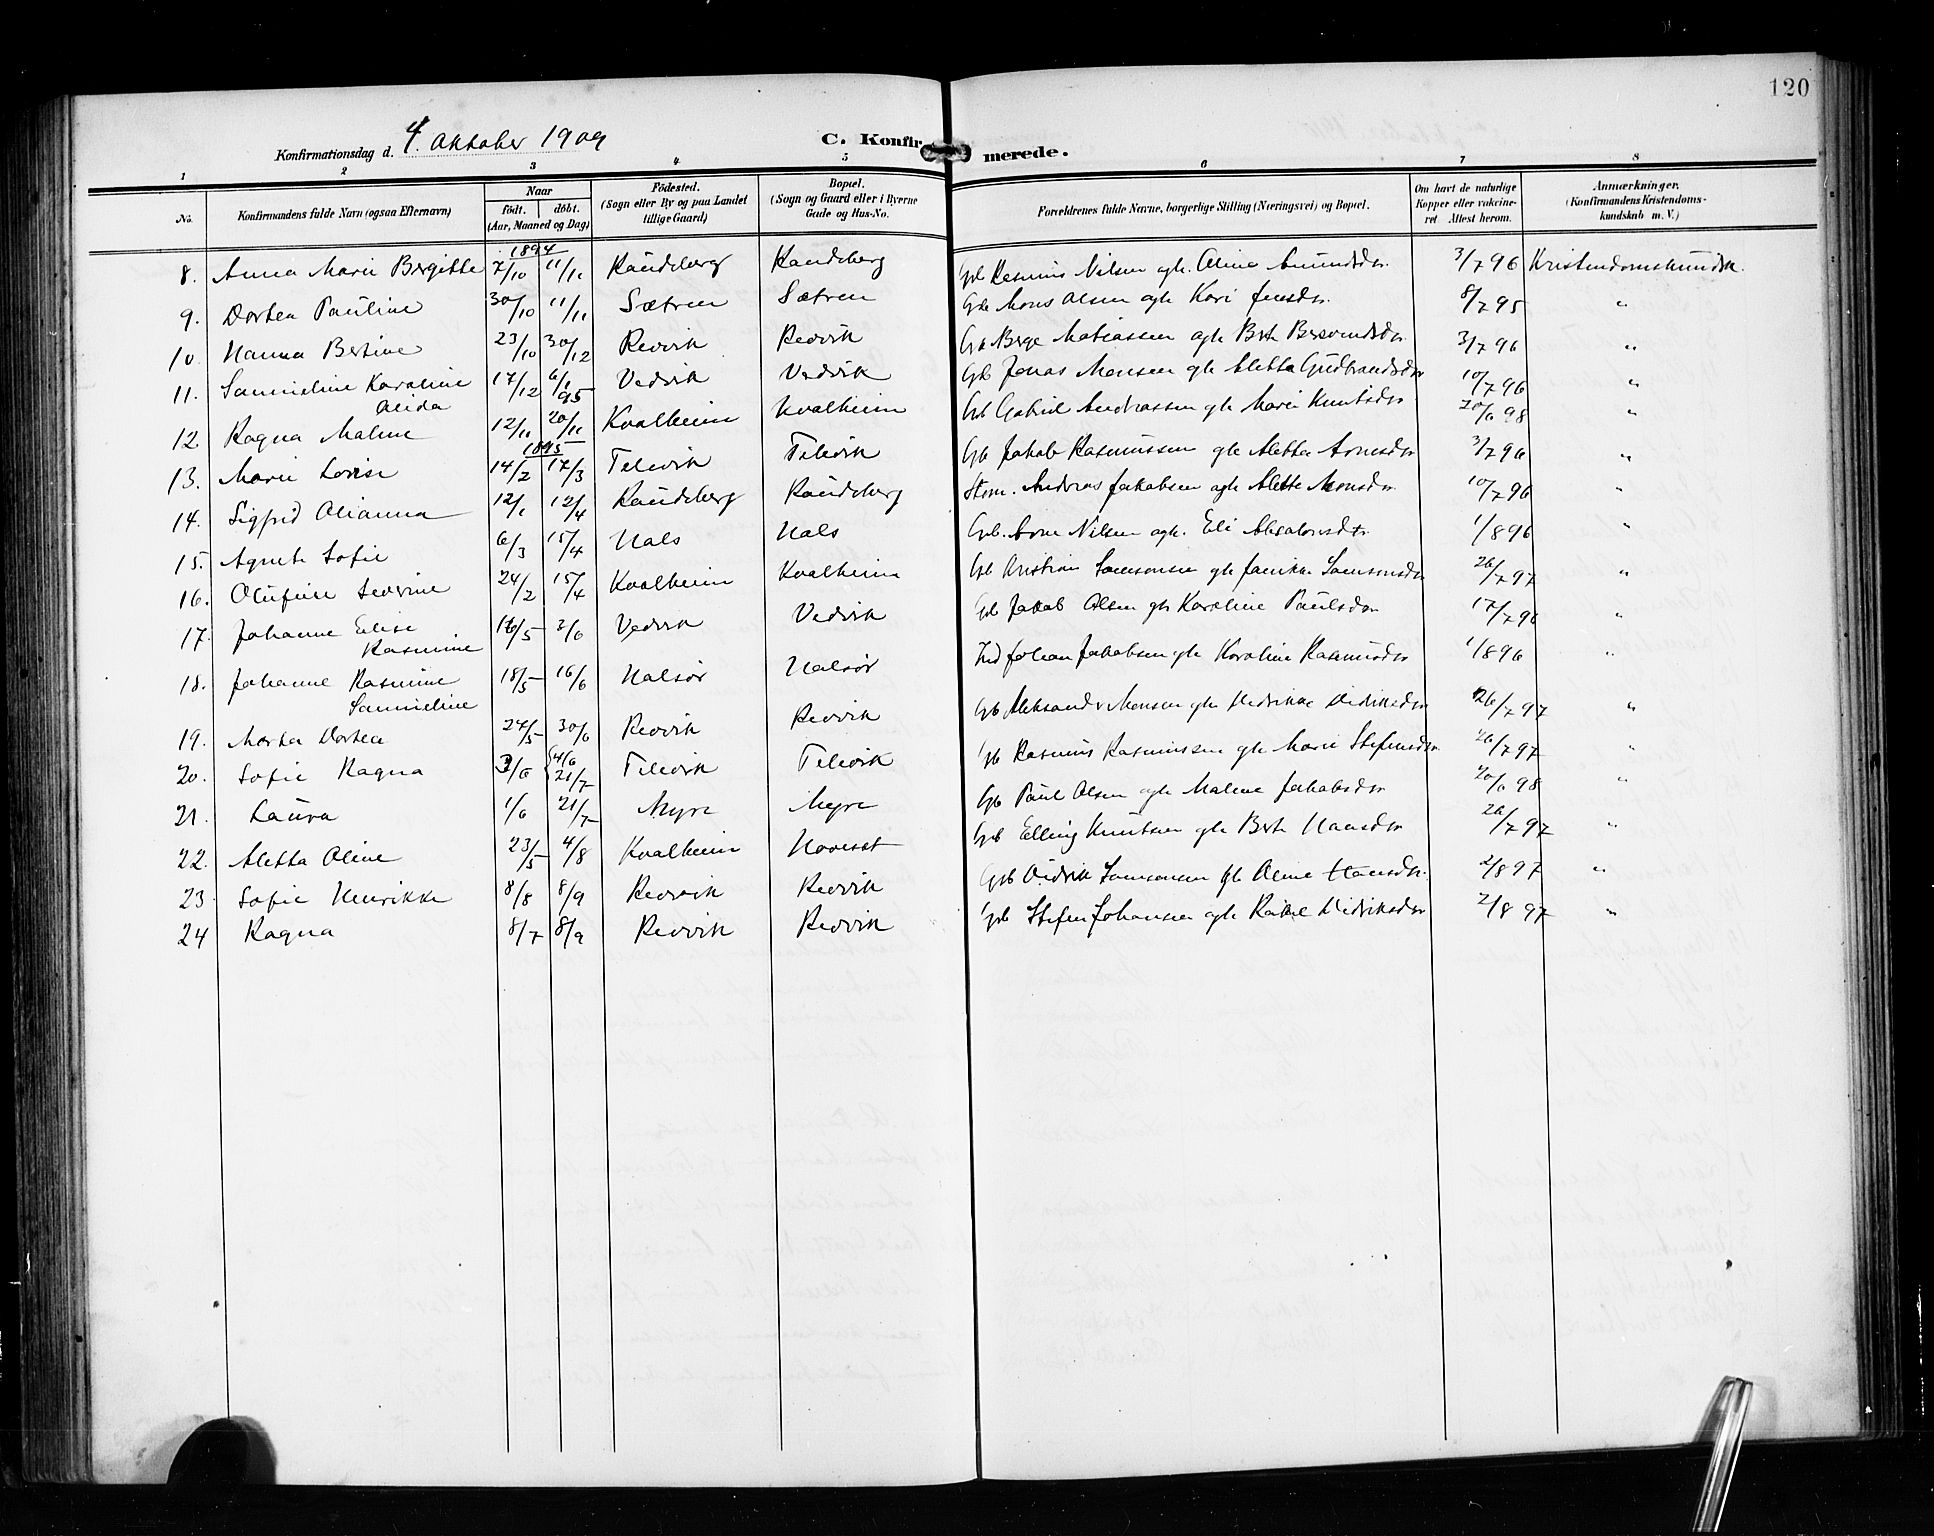 120
Konfirmationsdag d. 4. Oktober 1909 C. Konfirmerede.
1 2 3 4 5 6 7 8
No. Konfirmandens fulde Navn (ogsaa Efternavn) Naar født. døbt. (Aar, Maaned og Dag) Fødested. (Sogn eller By og paa Landet tillige Gaard) Bopæl. (Sogn og Gaard eller i Byerne Gade og Hus-No. Forældrenes fulde Navne, borgerlige Stilling (Næringsvei) og Bopæl. Om havt de naturlige Kopper eller vaccineret. Attest herom. Anmærkninger. (Konfirmandens Kristendomskundskab m. V.)
1894
8. Anna Marie Bergitte 7/10 11/11 Raudeberg Raudeberg Gb Rasmus Nilsen og h. Oline Amundsdr 3/7 96 Kristendomskundsk.
9. Dortea Pauline 30/10 11/11 Sætren Sætren Gb Mons Olsen og h Kari Jensdr 8/7 95 "
10. Hanna Bertine 23/10 30/12 Revvik Revvik Gb Berge Matiassen og h Brt 3/7 96 "
11. Samueline Karoline Alida 17/12 6/1 95 Vedvik Vedvik Gb Jonas Monsen gh Aletta Gudbrandsdr 10/7 96 "
12. Ragna Maline 12/11 20/11 Kvalheim Kvalheim Gb Gabriel Andreassen gh Marie Knutsdr 20/6 98 "
1895
13. Marie Lovise 14/2 17/3 Tilevik Tilevik Gb Jakob Rasmussen gh Aletta Arnesdr 3/7 96 "
14. Sigfrid Olianna 12/1 12/4 Raudeberg Raudeberg Stom. Andreas Jakobsen og h Alette Monsdr 10/7 96 "
15. Agnete Sofie 6/3 15/4 Hals Hals Gb. Arne Nilsen og h. Eli Absalonsdr 1/8 96 "
16. Olufine Severine 24/2 15/4 Kvalheim Kvalheim Gb Kristian Samsonsen gh Janikke Samsonsdr 26/7 97 "
17. Johanne Elise Rasmine 16/5 3/6 Vedvik Vedvik Gb Jakob Olsen gh Karoline Paulsdr 17/7 96 "
18. Johanne Rasmine Samueline 18/5 16/6 Halsør Halsør Ind Johan Jakobsen gh Karoline Rasmusdr 1/8 96 "
19. Marta Dortea 24/5 30/6 Revvik Revvik Gb Aleksander Monsen gh Hedrikke Didriksdr 26/7 97 "
20. Sofie Ragna 3/6 21/7 Tilevik Tilevik Gb Rasmus Rasmussen gh Marie Stefensdr 26/7 97 "
21. Laura 1/6 21/7 Myre Myre Gb Paul Olsen og h Maline Jakobsdr 20/6 98 "
22. Aletta Oline 23/5 4/8 Kvalheim Gb Elling Knutsen gh Brt Hansdr 26/7 97 "
23. Sofie Henrikke 8/8 8/9 Revvik Revvik Gb Didrik Samsonsen gh Oline Hansdr. 2/8 97 "
24 Ragna 8/7 8/9 Revvik Revvik Gb Stefen Johansen og h Rakel Didriksdr 2/8 97 "